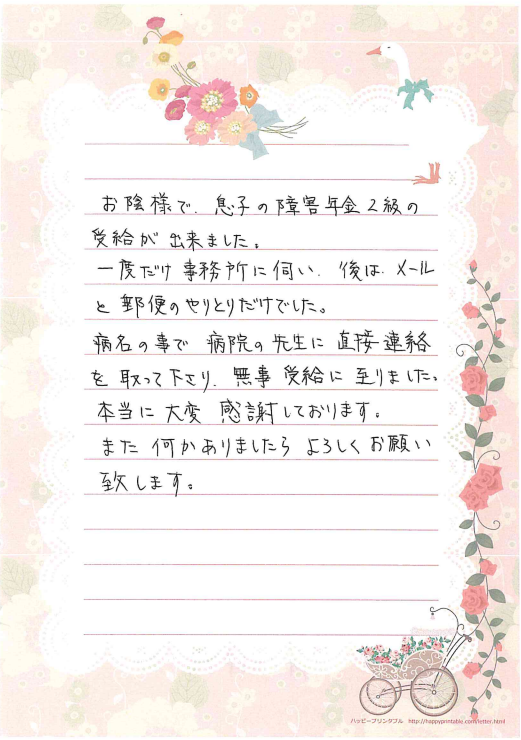 お陰様で、息子の障害年金2級の
受給が出来ました。
一度だけ事務所に伺い、後は、メール
と郵便のやりとりだけでした。
病名の事で病院の先生に直接連絡
を取って下さり、無事受給に至りました。
本当に大変感謝しております。
また何かありましたらよろしくお願い
致します。
ハッピープリンタブル http://happyprintable.com/letter.html